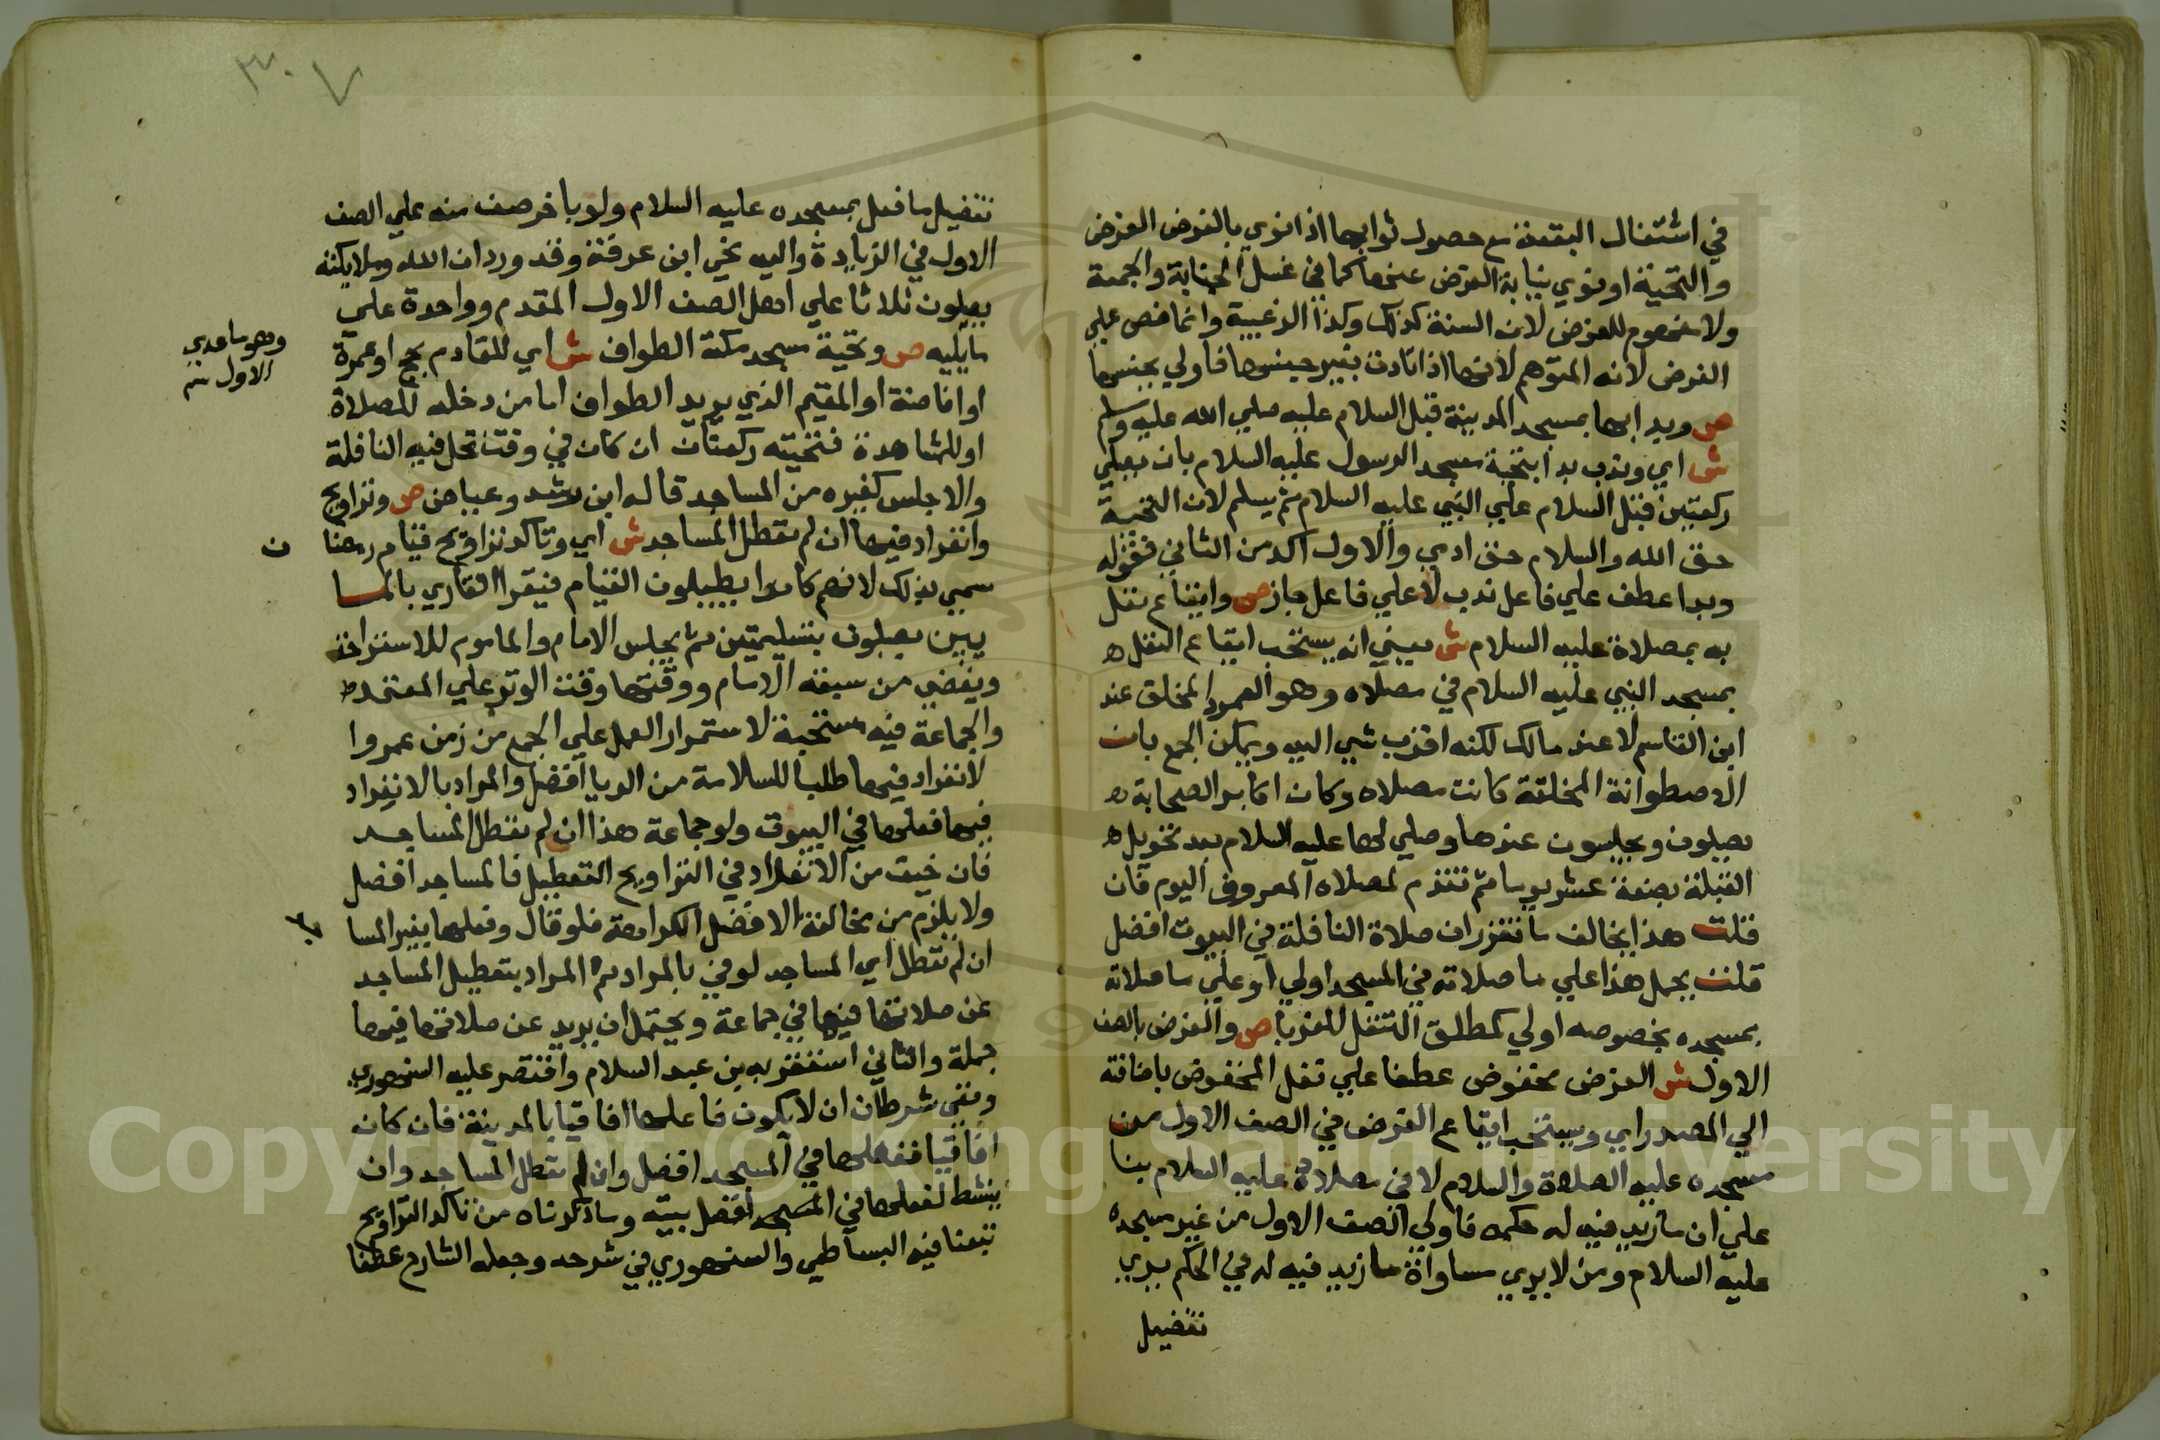 في اشتغال البقعة مع حصول ثوابها اذا نوي بالفرض الفرض
والتحية او نوي نيابة الفرض عنها كما في غسل الجنابة والجمعة
ولا مفهوم للفرض لان السنة كذلك وكذا الرغيبة وانما نص علي
الفرض لانه المتوهم لانها اذا تادت بغير جنسها فاولي بجنسها
ص وبدا بها بمسجد المدينة قبل السلام عليه صلي الله عليه وسلم
ش اي وندب بدا بتحية مسجد الرسول عليه السلام بان يصلي
ركعتين قبل السلام علي النبي عليه السلام ثم يسلم لان التحية
حق الله والسلام حق ادمي والاول اكد من الثاني فقوله
وبدا عطف علي فاعل ندب لا علي فاعل جاز ص وايقاع نفل
به بمصلاه عليه السلام ش يعني انه يستحب ايقاع النفل
بمسجد النبي عليه السلام في مصلاه وهو العمود المخلق عند
ابن القاسم لا عند مالك لكنه اقرب شي اليه ويمكن الجمع بان
الاصطوانة المخلقة كانت مصلاه وكان اكابر الصحابة
يصلون ويجلسون عندها وصلي لها عليه السلام بعد تحويل
القبلة بضعة عشر يوما ثم تقدم لمصلاه المعروف اليوم فان
قلت هذا يخالف ما تقرر ان صلاة النافلة في البيوت افضل
قلت يحمل هذا علي ما صلاته في المسجد اولي او علي ما صلاته
بمسجده بخصوصه اولي كمطلق التنفل للغربا ص والفرض بالصف
الاول ش الفرض مخفوض عطفا علي نفل المخفوض باضافته
الي المصدر اي ويستحب ايقاع الفرض في الصف الاول من
مسجده عليه الصلاة والسلام لا في مصلاه عليه السلام بنا
علي ان ما زيد فيه له حكمه فاولي الصف الاول من غير مسجده
عليه السلام ومن لا يري مساواة ما زيد فيه له في الحكم يري
تفضيل
٣٠٧
تفضيل ما فعل بمسجده عليه السلام ولو باخر صف منه علي الصف
الاول في الزيادة واليه نحي ابن عرفة وقد ورد ان الله وملايكته
يصلون ثلاثا علي اهل الصف الاول المقدم وواحدة علي
ما يليه ص وتحية مسجد مكة الطواف ش اي للقادم بحج او عمرة
او افاضة او المقيم الذي يريد الطواف اما من دخله للصلاة
او للمشاهدة فتحيته ركعتان ان كان في وقت تحل فيه النافلة
والا جلس كغيره من المساجد قاله ابن رشد وعياض ص وتراويح
وانفراد فيها ان لم تعطل المساجد ش اي وتاكد تراويح قيام رمضا
ن
سمي بذلك لانهم كانوا يطيلون القيام فيقرا القاري بالمسا
يين يصلون بتسليمتين ثم يجلس الامام والماموم للاستراحة
ويقضي من سبقه الامام ووقتها وقت الوتر علي المعتمد
والجماعة فيه مستحبة لاستمرار العمل علي الجمع من زمن عمر وا
لانفراد فيها طلبا للسلامة من الريا افضل والمراد بالانفراد
فيها فعلها في البيوت ولو جماعة هذا ان لم تعطل المساجد
فان خيف من الانفراد في التراويح التعطيل فالمساجد افضل
ولا يلزم من مخالفة الافضل الكراهة فلو قال وفعلها بغير المسا
ان لم تعطل اي المساجد لوفي بالمراد ثم المراد بتعطيل المساجد
عن صلاتها فيها في جماعة ويحتمل ان يريد عن صلاتها فيها
جملة والثاني استقر به بن عبد السلام واقتصر عليه السنهوري
وبقي شرطان ان لا يكون فاعلها افاقيا بالمدينة فان كان
افاقيا ففعلها في المسجد افضل وان لم تعطل المساجد وان
ينشط لفعلها في المسجد افضل بيته وما ذكرناه من تاكد التراويح
تبعنا فيه البساطي والسنهوري في شرحه وجعله الشارح عطفا
وهو ما عدي
الاول